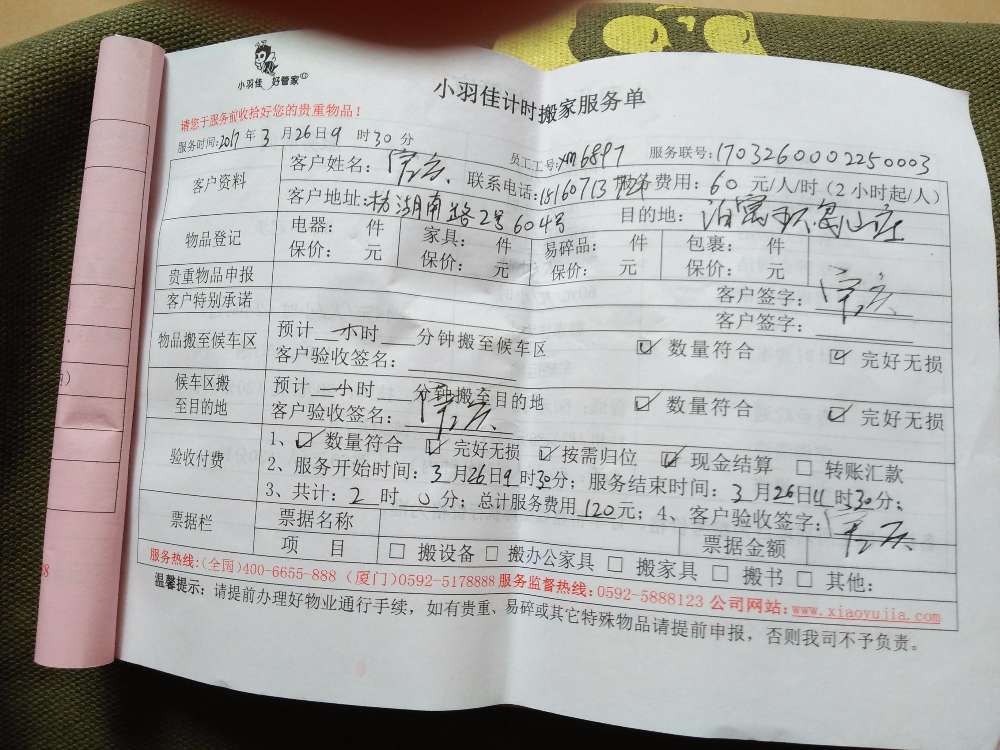 小羽佳 好管家
小羽佳计时搬家服务单
请您于服务前收拾好您的贵重物品！
服务时间:2017年3月26日9时30分 员工工号:xm6897 服务联号:1703260002250003
客户资料 客户姓名: 联系电话:15160713 服务费用:60元/人/时（2小时起/人）
客户地址:枋湖南路2号604号 目的地:
物品登记 电器: 件 家具: 件 易碎品: 件 包裹: 件
保价: 元 保价: 元 保价: 元 保价: 元
贵重物品申报 客户签字:
客户特别承诺 客户签字:
物品搬至候车区 预计 一小时 分钟搬至候车区 ☑ 数量符合 ☑ 完好无损
客户验收签名:
候车区搬至目的地 预计 一小时 分钟搬至目的地 ☑ 数量符合 ☑ 完好无损
客户验收签名:
验收付费 1、☑ 数量符合 ☑ 完好无损 ☑ 按需归位 ☑ 现金结算 □ 转账汇款
2、服务开始时间:3月26日9时30分; 服务结束时间:3月26日11时30分;
3、共计:2时0分; 总计服务费用120元; 4、客户验收签字:
票据栏 票据名称 票据金额
项 目 □ 搬设备 □ 搬办公家具 □ 搬家具 □ 搬书 □ 其他:
服务热线:(全国)400-6655-888 (厦门)0592-5178888 服务监督热线:0592-5888123 公司网站:www.xiaoyujia.com
温馨提示:请提前办理好物业通行手续，如有贵重、易碎或其它特殊物品请提前申报，否则我司不予负责。